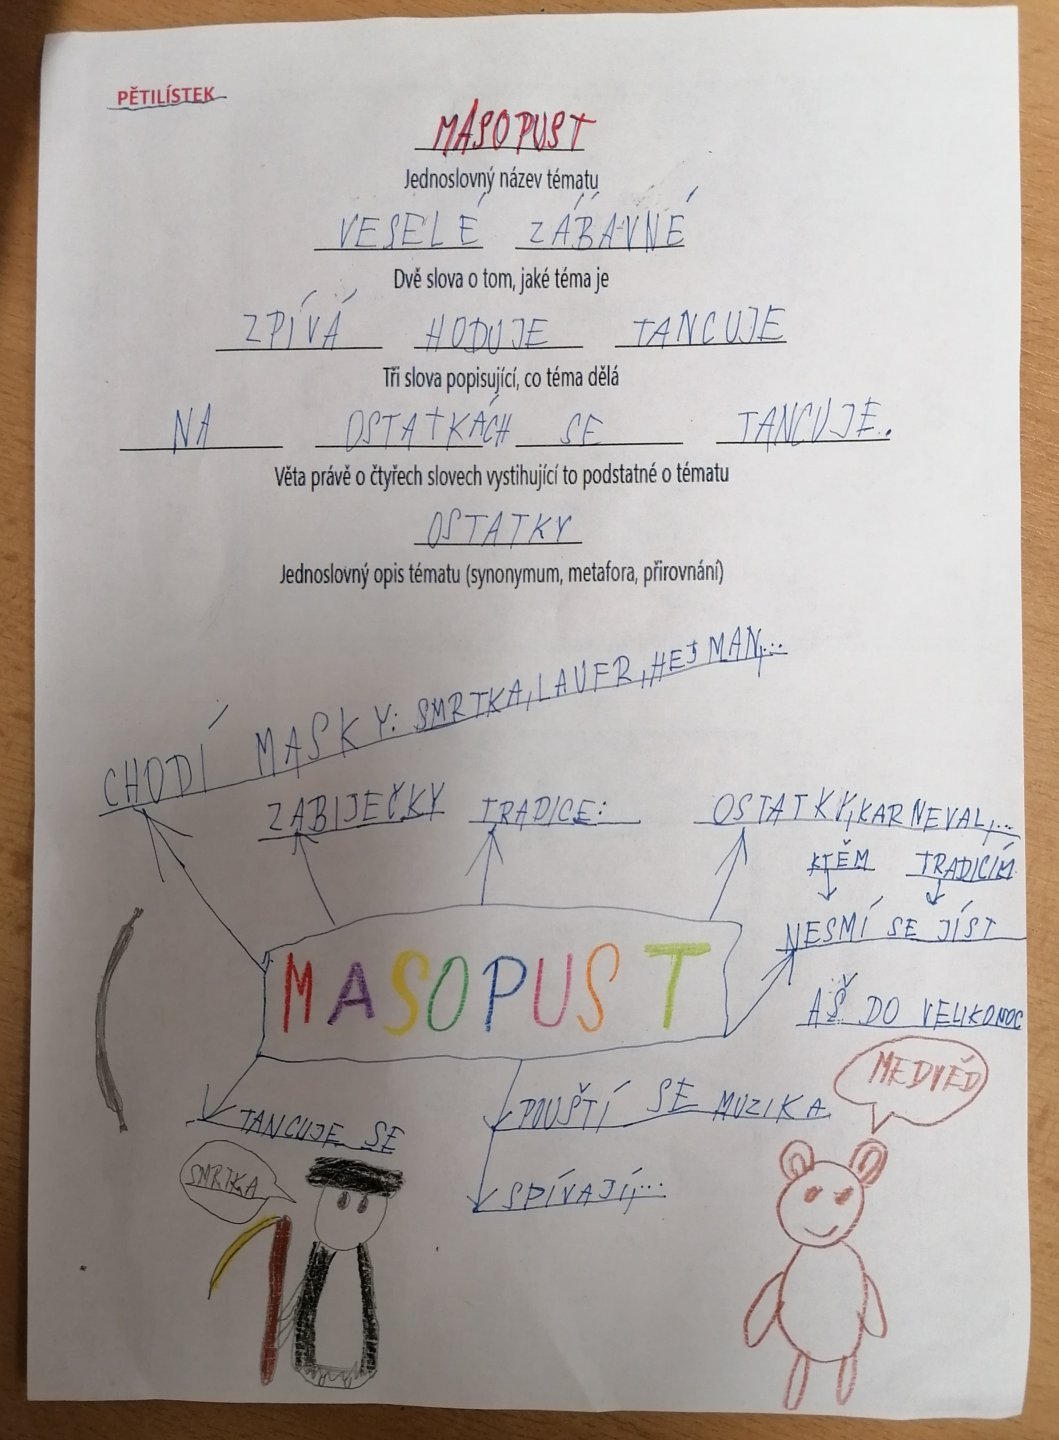 PĚTILÍSTEK
MASOPUST
Jednoslovný název tématu
VESELÉ ZÁBAVNÉ
Dvě slova o tom, jaké téma je
ZPÍVÁ HODUJE TANCUJE
Tři slova popisující, co téma dělá
NA OSTATKÁCH SE TANCUJE.
Věta právě o čtyřech slovech vystihující to podstatné o tématu
OSTATKY
Jednoslovný opis tématu (synonymum, metafora, přirovnání)
CHODÍ MASKY: SMRTKA, LAUFR, HEJMAN,...
ZABIJEČKY TRADICE: OSTATKY, KARNEVAL,...
KTĚM TRADICÍM
NESMÍ SE JÍST
AŠ DO VELIKONOC
MASOPUST
MEDVĚĎ
TANCUJE SE
POUŠTÍ SE MUZIKA
SMRTKA
SPÍVAJÍ,...